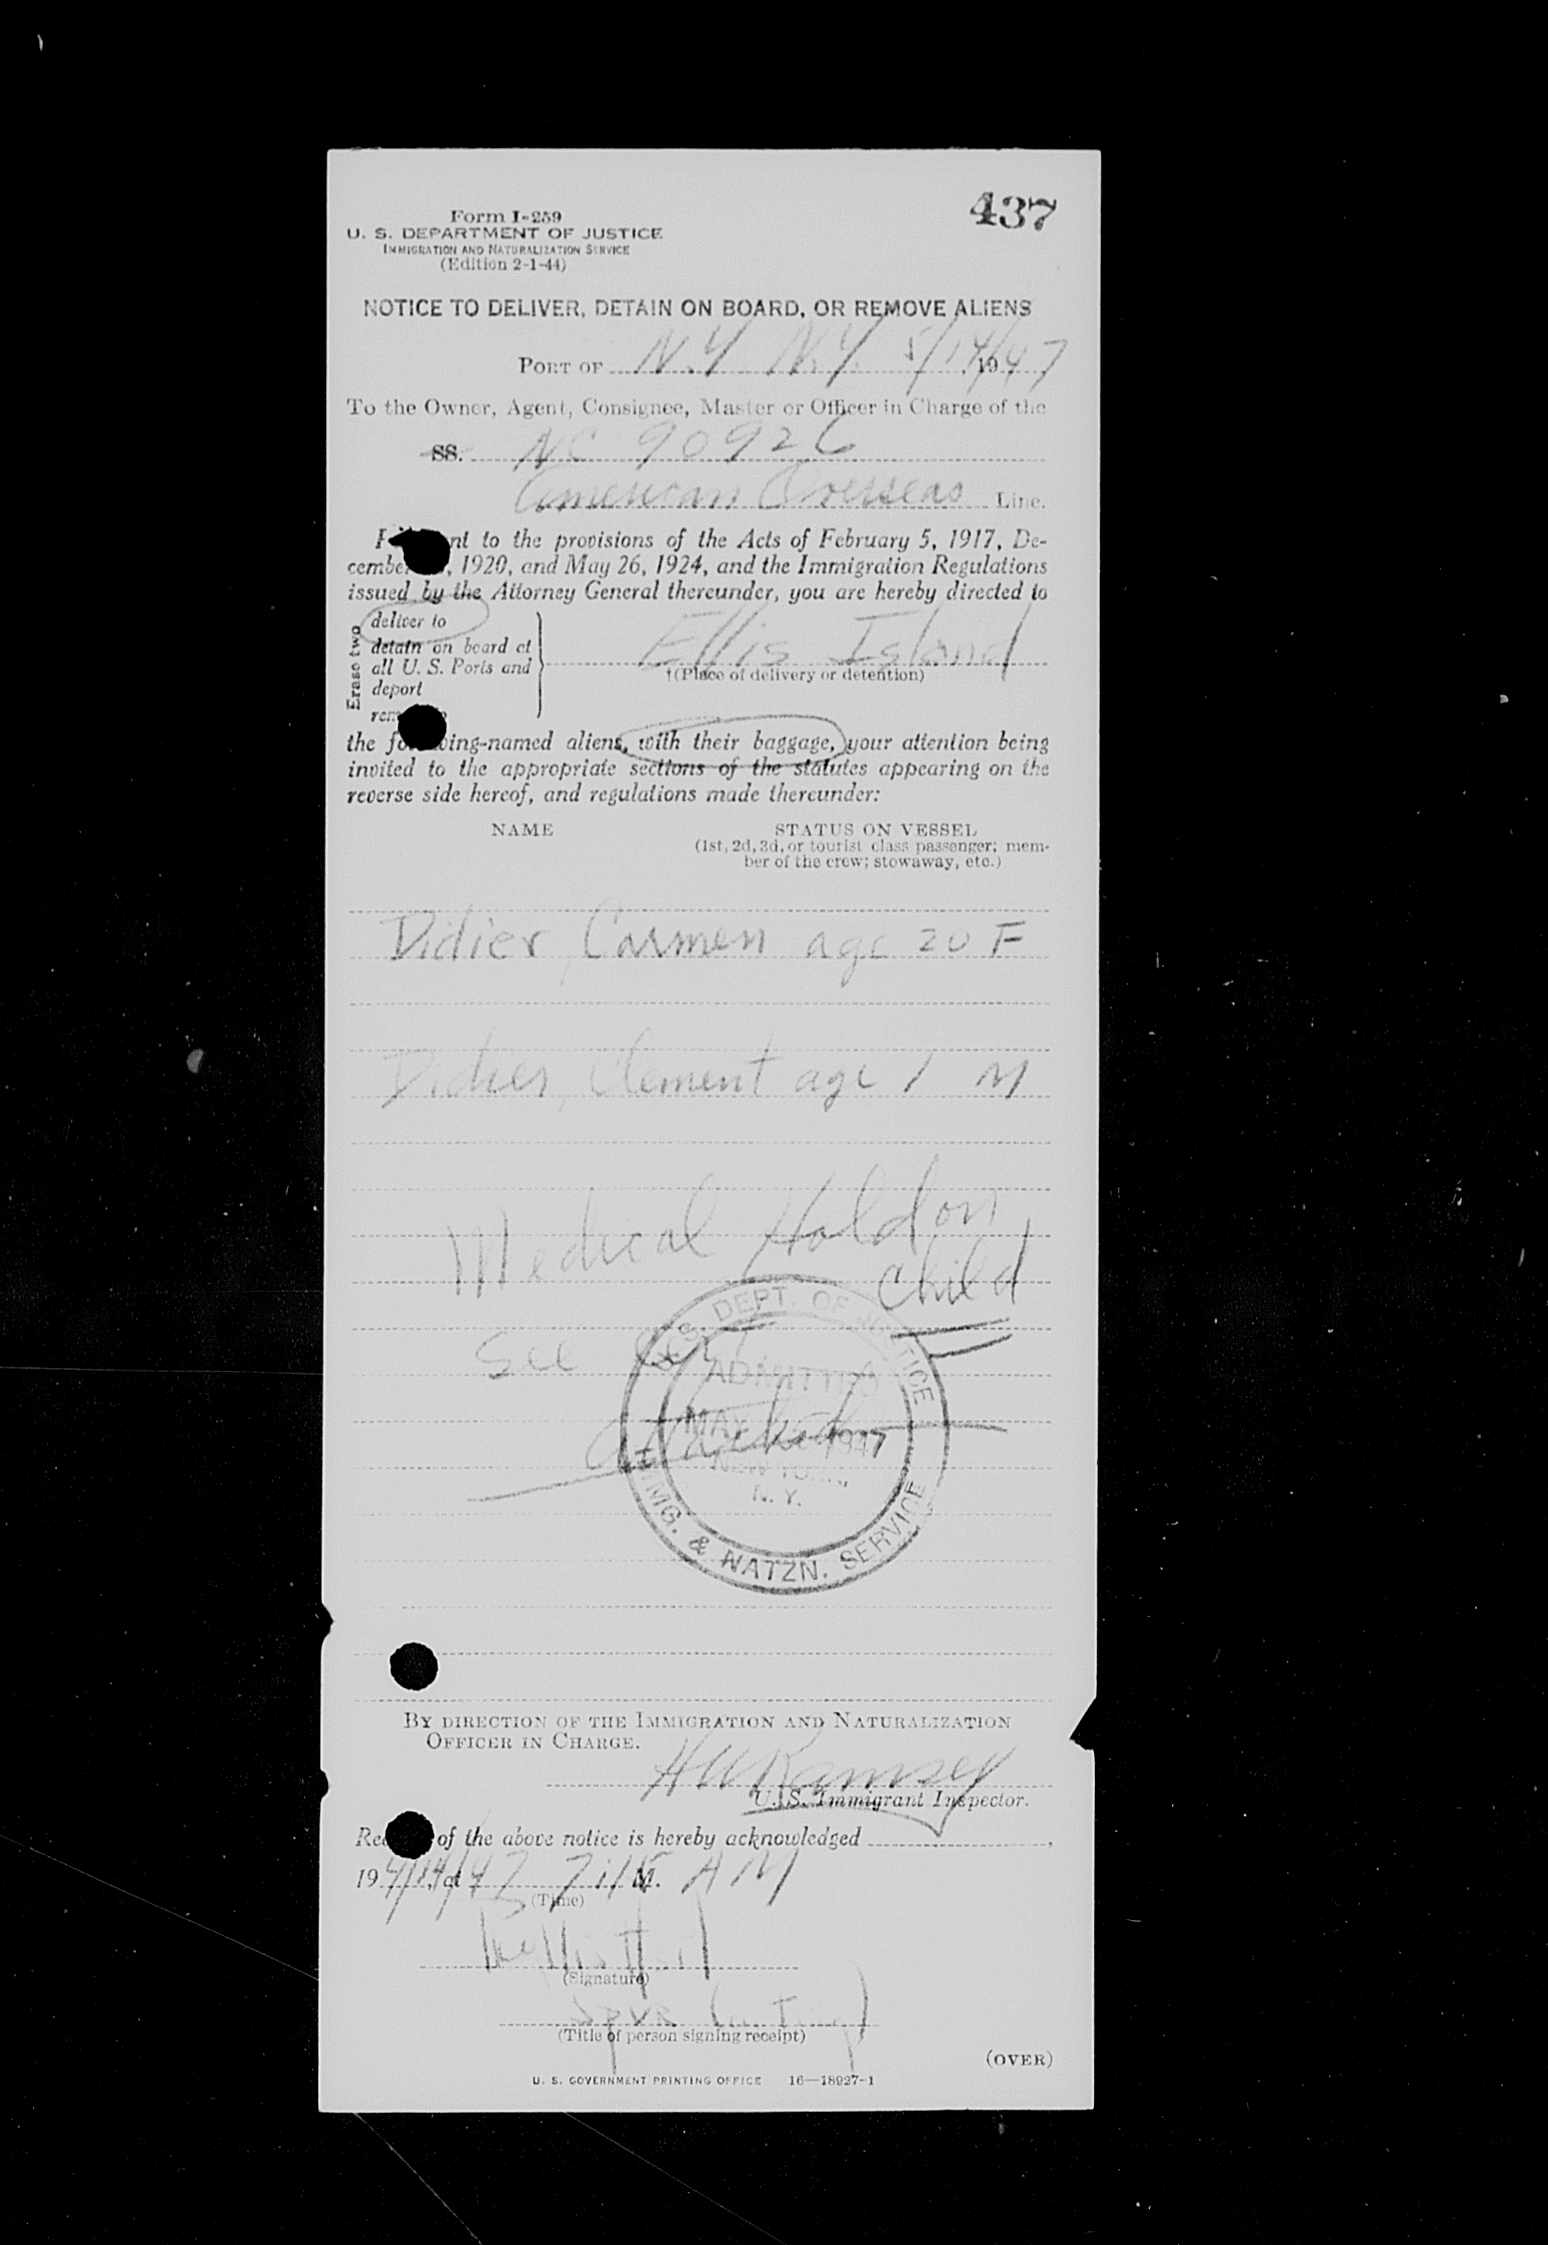 437
Form I-259
U. S. DEPARTMENT OF JUSTICE
IMMIGRATION AND NATURALIZATION SERVICE
(Edition 2-1-44)
NOTICE TO DELIVER, DETAIN ON BOARD, OR REMOVE ALIENS
PORT OF N.Y N.Y. 5/14/1947
To the Owner, Agent, Consignee, Master or Officer in Charge of the
SS. NC 90926
American Overseas Line.
nt to the provisions of the Acts of February 5, 1917, De-
cember , 1920, and May 26, 1924, and the Immigration Regulations
issued by the Attorney General thereunder, you are hereby directed to
Erase two
deliver to
detain on board at
all U. S. Ports and
deport
Ellis Island
†(Place of delivery or detention)
the following-named aliens, with their baggage, your attention being
invited to the appropriate sections of the statutes appearing on the
reverse side hereof, and regulations made thereunder:
NAME STATUS ON VESSEL
(1st, 2d, 3d, or tourist class passenger; mem-
ber of the crew; stowaway, etc.)
Didier, Carmen age 20 F
Didier, Clement age 1 M
Medical Hold on
Child
See Cert
attached
U.S. DEPT. OF JUSTICE
ADMITTED
MAY 1947
NEW YORK,
N. Y.
IMMG. & NATZN. SERVICE
BY DIRECTION OF THE IMMIGRATION AND NATURALIZATION
OFFICER IN CHARGE.
HW Ramsey
U. S. Immigrant Inspector.
of the above notice is hereby acknowledged
19 at 7:15 M. AM
(Time)
(Signature)
(Title of person signing receipt)
(OVER)
U. S. GOVERNMENT PRINTING OFFICE 16—18927-1